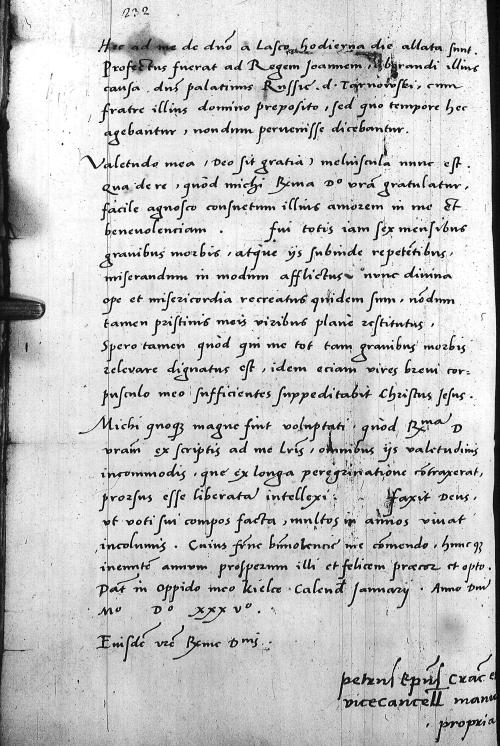 232
Hec ad me de dno a Lasco hodierna die allata sunt.
Profectus fuerat ad Regem Joannem, liberandi illius
causa, dns palatinus Russie. d. Tarnowski, cum
fratre illius domino preposito, sed quo tempore hec
agebantur, nondum pervenisse dicebantur.
Valetudo mea, Deo sit gratia, meliuscula nunc est.
Qua de re, quòd michi Rma Do vra gratulatur,
facile agnosco consuetum illius amorem in me Et
benevolenciam. fui totis iam sex mensibus
gravibus morbis, atque ijs subinde repetetibus,
miserandum in modum afflictus, nunc divina
ope et misericordia recreatus quidem sum, nodum
tamen pristinis meis viribus planè restitutus,
Spero tamen quòd qui me tot tam gravibus morbis
relevare dignatus est, idem eciam vires brevi cor-
pusculo meo sufficientes suppeditabit Christus Jesus.
Michi quoq magne fuit voluptati, quòd Rma D
vram ex scriptis ad me lris, omnibus ijs valetudinis
incommodis, que ex longa peregrinatione cotraxerat,
prorsus esse liberata intellexi. faxit Deus,
ut voti sui compos facta, multos in annos vivat
incolumis. Cuius sync bnivolencie me comendo, hunc q
ineunte annum prosperum illi et felicem præcor et opto.
Dat in Oppido meo Kielce. Calend Januarij. Anno Dni
Mo Do xxx vo.
Eiusde vre Rme Dnis.
petrus Epus Crac
vicecancell manu
propria